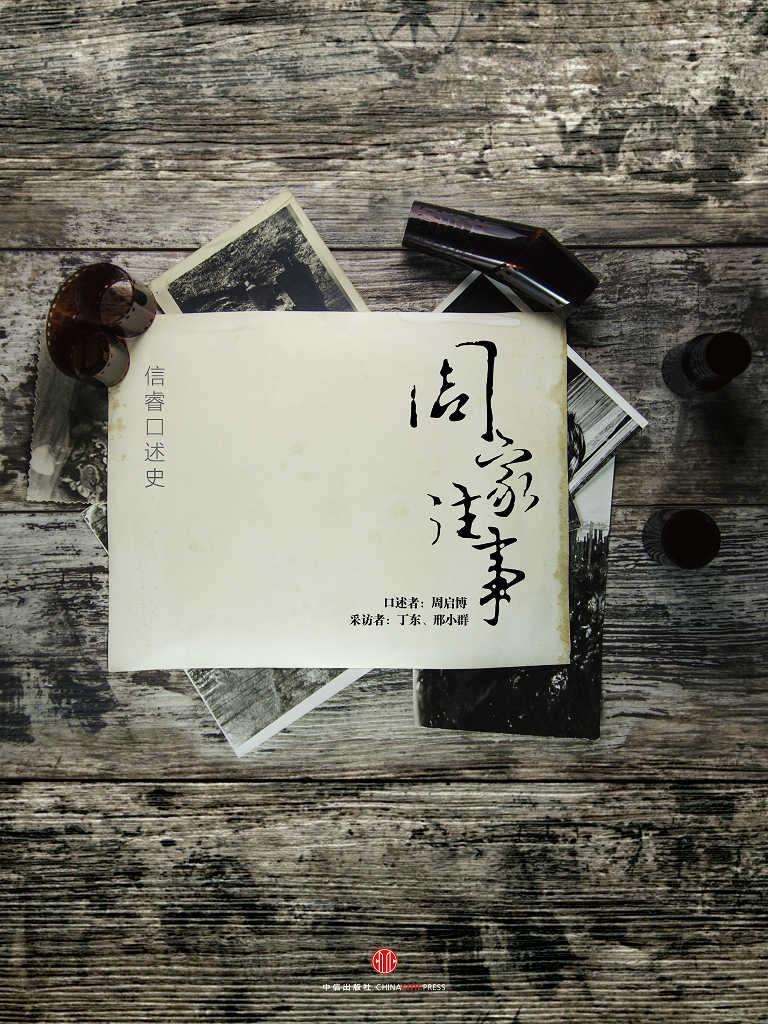 信睿口述史
周家往事
口述者：周启博
采访者：丁东、邢小群
中信出版社·CHINACITICPRESS